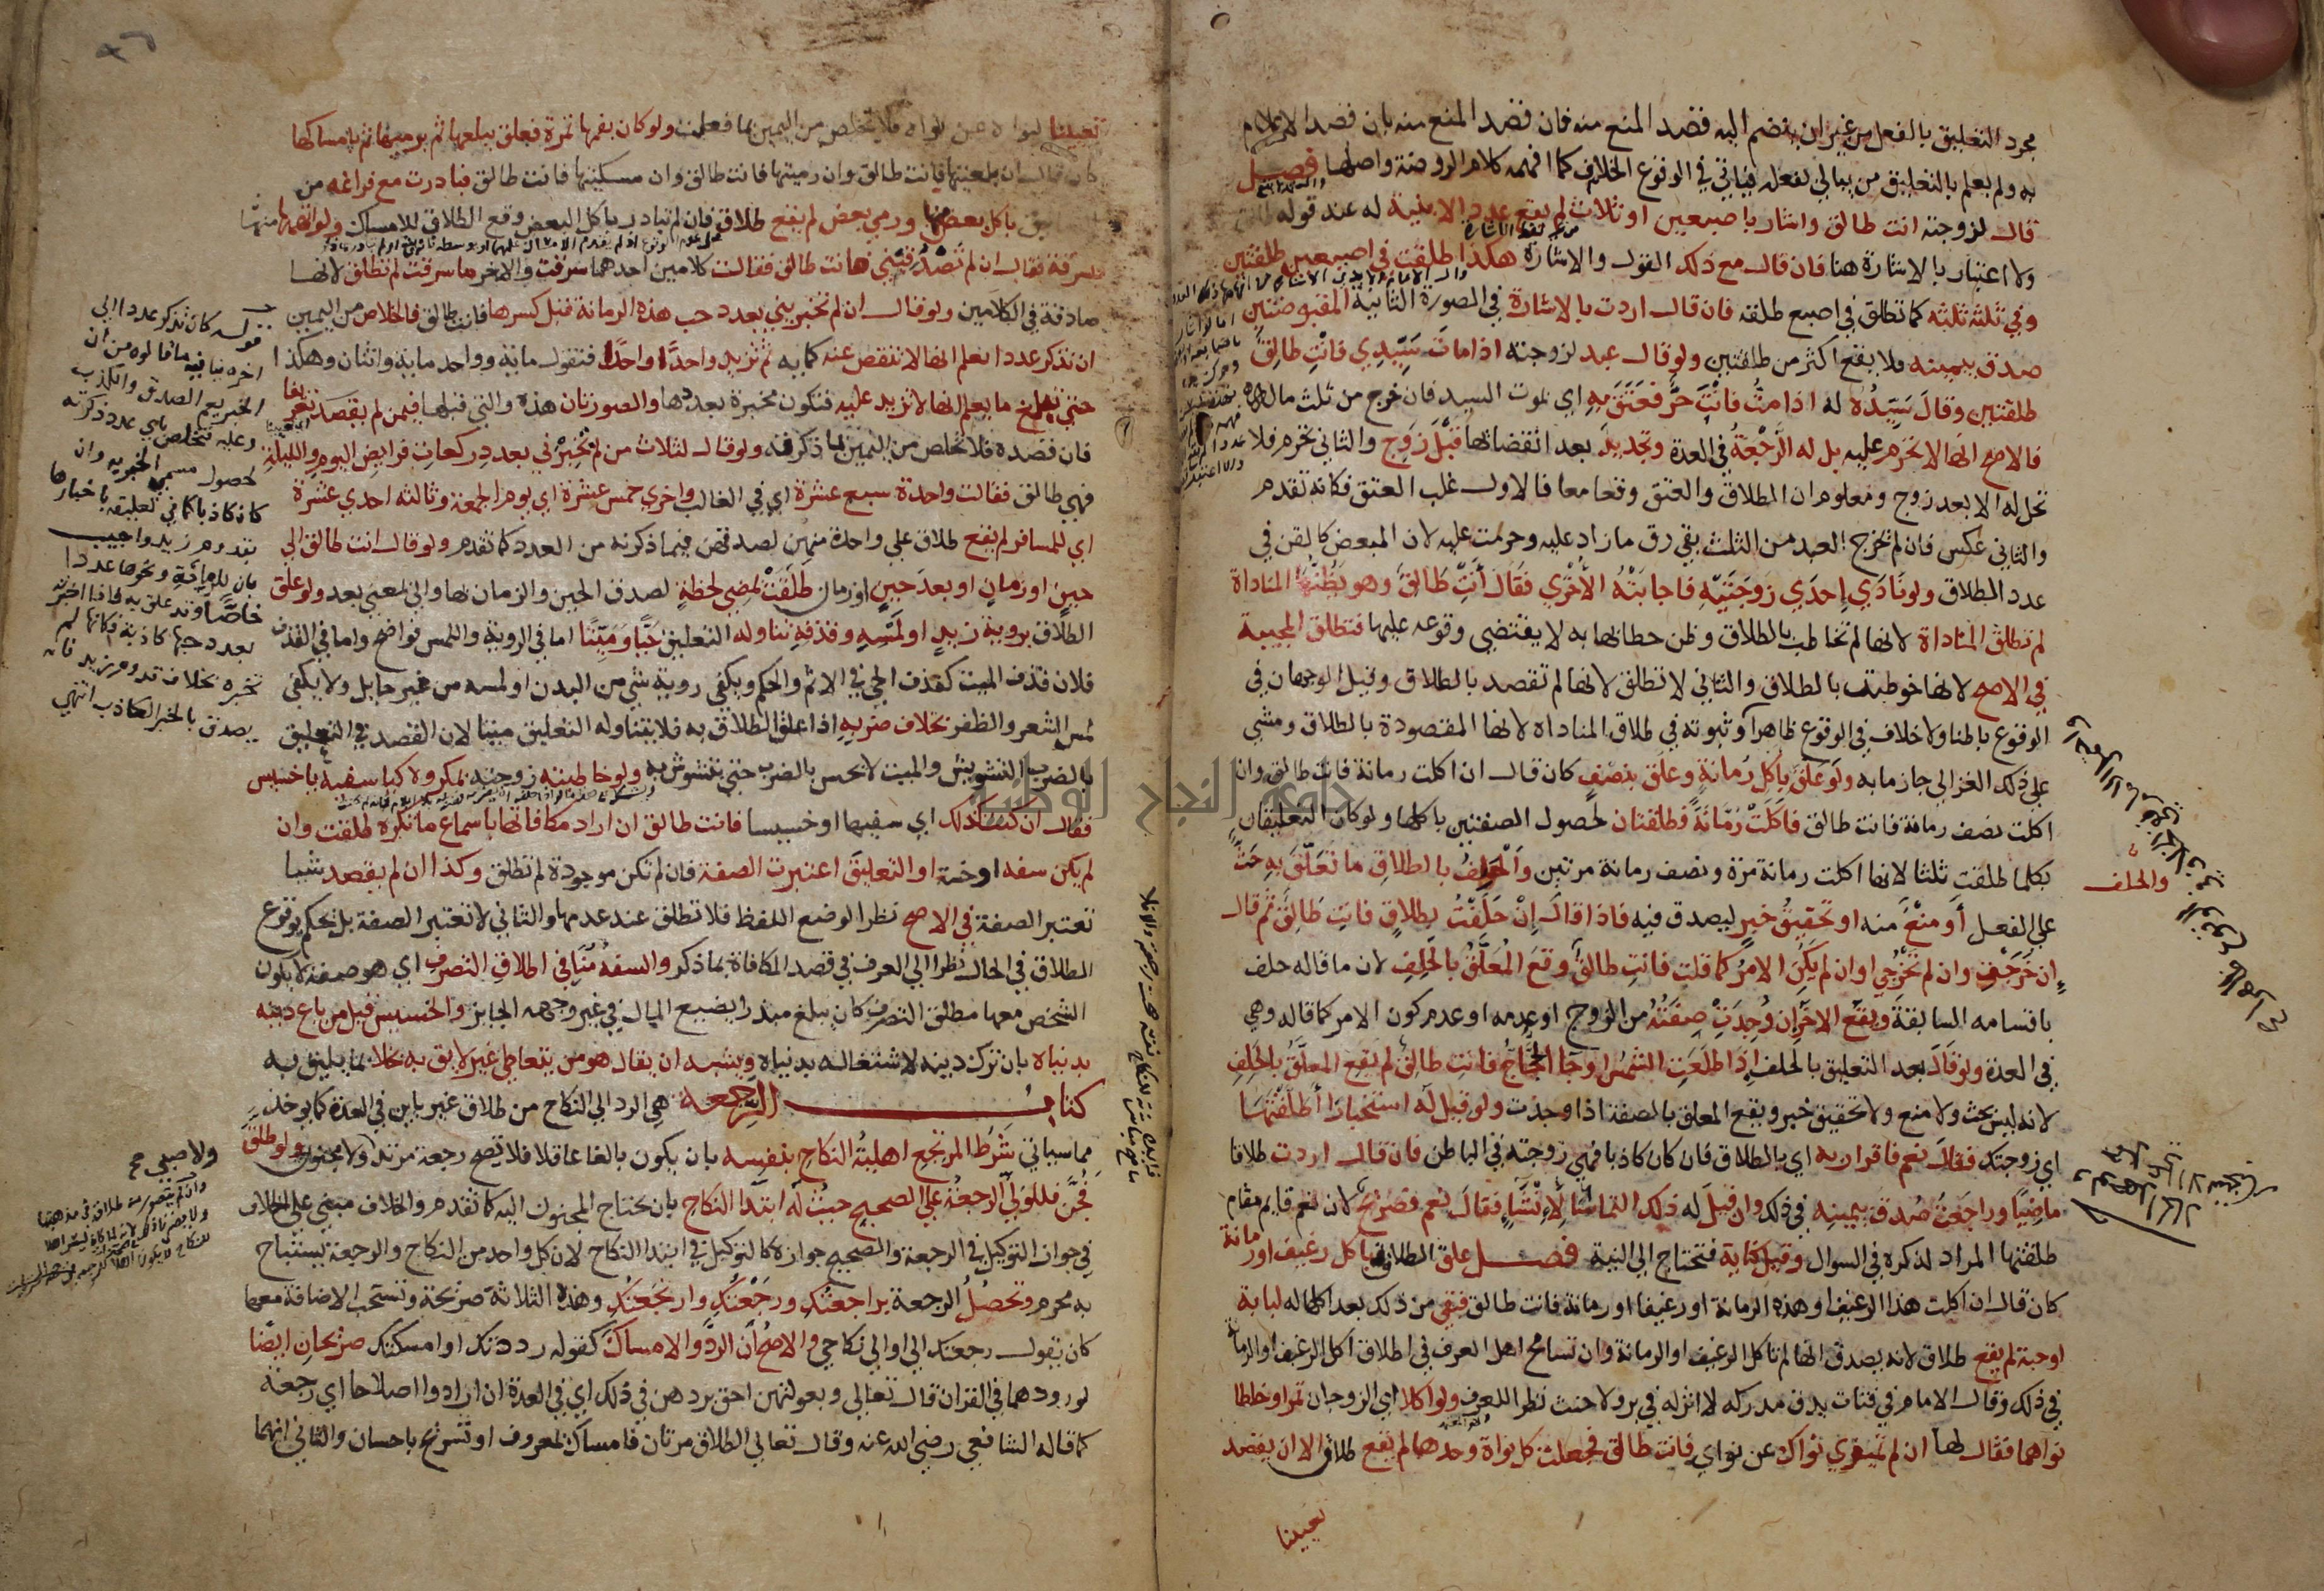 مجرد التعليق بالفعل من غير ان ينضم اليه قصد المنع منه فان قصد المنع منه بان قصد الاعلام
به ولم يعلم بالتعليق من يبالي بفعله فياتي في الوقوع الخلاف كما افهمه كلام الروضة واصلها فصل
قال لزوجته انت طالق واشار باصبعين او ثلاث لم يقع عدد الا بنية له عند قوله طالق
ولا اعتبار بالاشارة هنا فان قال مع ذلك القول والاشارة هكذا طلقت في اصبعين طلقتين
وفي ثلثة ثلثة كما تطلق في اصبع طلقة فان قال اردت بالاشارة في الصورة الثانية المقبوضتين
صدق بيمينه ولا يقع اكثر من طلقتين ولو قال عبد لزوجته اذا مات سيدي فانت طالق
طلقتين وقال سيده له اذا مت فانت حر فعتق به اي بموت السيد فان خرج من ثلث ماله
فالاصح انها لا تحرم عليه بل له الرجعة في العدة وتجديد بعد انقضائها قبل زوج والثاني تحرم فلا
تحل له الا بعد زوج ومعلوم ان الطلاق والعتق وقعا معا فالاول غلب العتق فكانه تقدم
والثاني عكس فان لم تخرج العبد من الثلث بقي رق ما زاد عليه وحرمت عليه لان المبعض كالقن في
عدد الطلاق ولو نادي احدي زوجتيه فاجابته الاخري فقال انت طالق وهو يظنها المناداة
لم تطلق المناداة لانها لم تخاطب بالطلاق وظن خطابها به لا يقتضي وقوعه عليها فتطلق المجيبة
في الاصح لانها خوطبت بالطلاق والثاني لا تطلق لانها لم تقصد بالطلاق وقيل الوجهان في
الوقوع باطنا ولا خلاف في الوقوع ظاهرا وثبوته في طلاق المناداه لانها المقصودة بالطلاق ومشي
علي ذلك الغزالي جازما به ولو علق باكل رمانة وعلق بنصف كان قال ان اكلت رمانة فانت طالق وان
اكلت نصف رمانة فانت طالق فاكلت رمانة فطلقتان لحصول الصفتين باكلها ولو كان التعليقان
بكلما طلقت ثلثا لانها اكلت رمانة مرة ونصف رمانة مرتين والحلف بالطلاق ما تعلق به حث
علي الفعل او منع منه او تحقيق خبر ليصدق فيه فاذا قال ان حلفت بطلاق فانت طالق ثم قال
ان خرجت وان لم تخرجي او ان لم يكن الامر كما قلت فانت طالق وقع المعلق بالحلف لان ما قاله حلف
باقسامه السابقة ويقع الاخر ان وجدت صفته من الزوج او عدمه او عدم كون الامر كما قاله وهي
في العدة ولو قال بعد التعليق بالحلف اذا طلعت الشمس او جا الحجاج فانت طالق لم يقع المعلق بالحلف
لانه ليس بحث ولا منع ولا تحقيق خبر ويقع المعلق بالصفة اذا وجدت ولو قيل له استخبارا اطلقتها
اي زوجتك فقال نعم فاقرار به اي بالطلاق فان كان كاذبا فهي زوجته في الباطن فان قال اردت طلاقا
ماضيا وراجعت صدق بيمينه في ذلك وان قيل له ذلك التماسا لانشاء فقال نعم فصريح لان نعم قايم مقام
طلقتها المراد لذكره في السوال وقيل كناية فتحتاج الي النية فصل علق الطلاق باكل رغيف او رمانة
كان قال ان اكلت هذا الرغيف او هذه الرمانة او رغيفا او رمانة فانت طالق فبقي من ذلك بعد اكلها له لبابة
او حبة لم يقع طلاق لانه يصدق انها لم تاكل الرغيف او الرمانة وان تسامح اهل العرف في اطلاق اكل الرغيف او الرمانة
في ذلك وقال الامام في فتات يدق مدركه لا اثر له في بر ولا حنث نظر اللعرف ولو اكلا اي الزوجان تمرا وخلطا
نواهما فقال لها ان لم تميزي نواك عن نواي فانت طالق فجعلت كل نواة وحدها لم يقع طلاق الا ان يقصد
تعيينا
والحلف
تعيينا لنواه عن نواه فلا تخلص من اليمين بما فعلت ولو كان بفمها تمرة فعلق ببلعها ثم برميها ثم بامساكها
كان قال ان بلعتيها فانت طالق وان رميتها فانت طالق وان مسكتيها فانت طالق فبادرت مع فراغه من
باكل بعض منها ورمي بعض لم يقع طلاق فان لم تبادر باكل البعض وقع الطلاق للامساك ولو اتهمها
بسرقة فقال ان لم تصدقيني فانت طالق فقالت كلامين احدهما سرقت والاخر ما سرقت لم تطلق لانها
صادقة في الكلامين ولو قال ان لم تخبريني بعدد حب هذه الرمانة قبل كسرها فانت طالق فالخلاص من اليمين
ان تذكر عددا يعلم انها لا تنقص عنه كمايه ثم تزيد واحدا واحدا فتقول ماية وواحد ماية واثنان وهكذا
حتي تبلغ ما يعلم انها لا تزيد عليه فتكون مخبرة بعددها والصورتان هذه والتي قبلها فيمن لم يقصد تعريفا
فان قصده فلا تخلص من اليمين بما ذكرته ولو قال لثلاث من لم تخبرني بعدد ركعات فرايض اليوم والليلة
فهي طالق فقالت واحدة سبع عشرة اي في الغالب واخري خمس عشرة اي يوم الجمعة وثالثة احدي عشرة
اي للمسافر لم يقع طلاق علي واحدة منهن لصدقهن فيما ذكرنه من العدد كما تقدم ولو قال انت طالق الي
حين او زمان او بعد حين او زمان طلقت بمضي لحظة لصدق الحين والزمان بها والي بمعني بعد ولو علق
الطلاق بروية زيد او لمسه وقذفه تناوله التعليق حيا وميتا اما في الروية واللمس فواضح واما في القذف
فلان قذف الميت كقذف الحي في الاثم والحكم ويكفي روية شي من البدن او لمسه من غير حايل ولا يكفي
لمس الشعر والظفر بخلاف ضربه اذا علق الطلاق به فلا يتناوله التعليق ميتا لان القصد في التعليق
بالضرب التشويش والميت لا يحس بالضرب حتي يتشوش به ولو خاطبته زوجته بمكروه كيا سفيه يا خسيس
فقال ان كنت كذلك اي سفيها او خسيسا فانت طالق ان اراد مكافاتها باسماع ما تكره طلقت وان
لم يكن سفه او خسة او التعليق اعتبرت الصفة فان لم تكن موجودة لم تطلق وكذا ان لم يقصد شيا
تعتبر الصفة في الاصح نظرا لوضع اللفظ فلا تطلق عند عدمها والثاني لا تعتبر الصفة بل يحكم بوقوع
الطلاق في الحال نظرا الي العرف في قصد المكافاة بما ذكر والسفه منافي اطلاق التصرف اي هو صفة لا يكون
الشخص معها مطلق التصرف كان يبلغ مبذرا يضيع المال في غير وجهه الجايز والخسيس قيل من باع دينه
بدنياه بان ترك دينه لاشتغاله بدنياه ويشبه ان يقال هو من يتعاطي غير لايق به بخلا بما يليق به
كتاب الرجعة هي الرد الي النكاح من طلاق غير باين في العدة كما يوخذ
مما سياتي شرط المرتجع اهلية النكاح بنفسه بان يكون بالغا عاقلا فلا تصح رجعة مرتد ولا مجنون ولو طلق
فجن فللولي الرجعة علي الصحيح حيث له ابتدا النكاح بان يحتاج المجنون اليه كما تقدم والخلاف مبني علي الخلاف
في جواز التوكيل في الرجعة والصحيح جوازه كالتوكيل في ابتدا النكاح لان كل واحد من النكاح والرجعة يستباح
به محرم وتحصل الرجعة براجعتك ورجعتك وارتجعتك وهذه الثلاثة صريحة وتستحب الاضافة معها
كان يقول رجعتك الي او الي نكاحي والاصح ان الرد والامساك كقوله رددتك او امسكتك صريحان ايضا
لورودهما في القران قال تعالي وبعولتهن احق بردهن في ذلك اي في العدة ان ارادوا اصلاحا اي رجعة
كما قاله الشافعي رضي الله عنه وقال تعالي الطلاق مرتان فامساك بمعروف او تسريح باحسان والثاني انهما
قوله كان تذكر عددا الي
اخره ينافيه ما قالوه من ان
الخبر يعم الصدق والكذب
وعليه فتخلص باي عدد ذكرته
لحصول مسمي الخبر به وان
كان كاذبا كما في تعليقه باخبارها
بقدوم زيد واجيب
بان للرمانة ونحوها عددا
خاصا وقد علق به فاذا اخبرته
بعدد حبها كاذبة فكانها لم
تخبره بخلاف قدوم زيد فانه
يصدق بالخبر الكاذب انتهي
ولا صبي صح
جامعة النجاح الوطنية